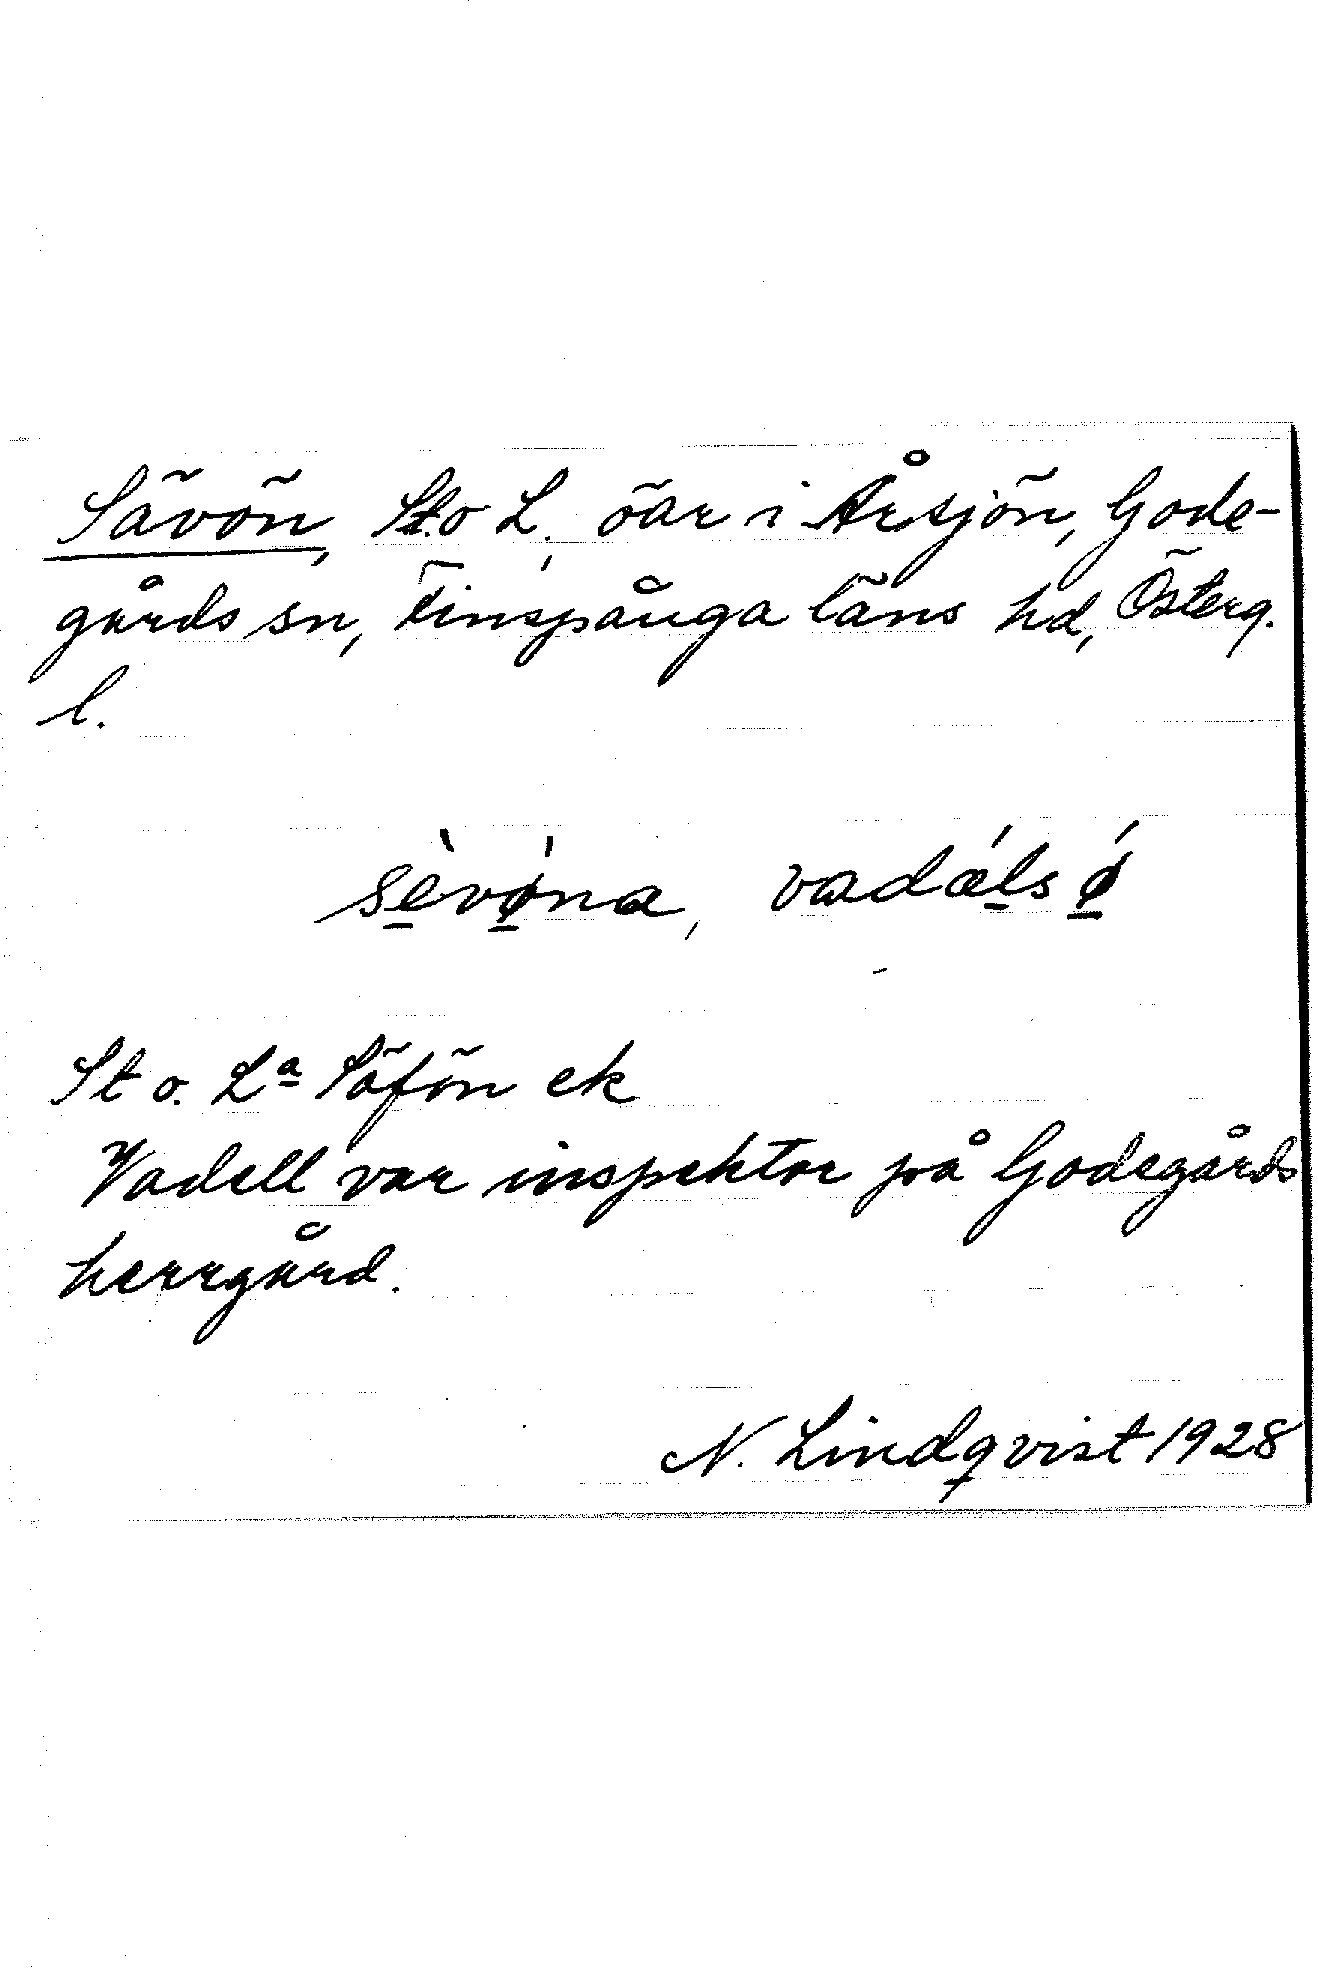 Sävön, St. o L., öar i Ärsjön, Gode-
gårds sn, Finspånga läns hd, Österg.
l.
sèvø̀na, vadǽlsǿ
St o. La Säfön ek
Vadell var inspektor på Godegårds
herrgård.
N. Lindqvist 1928